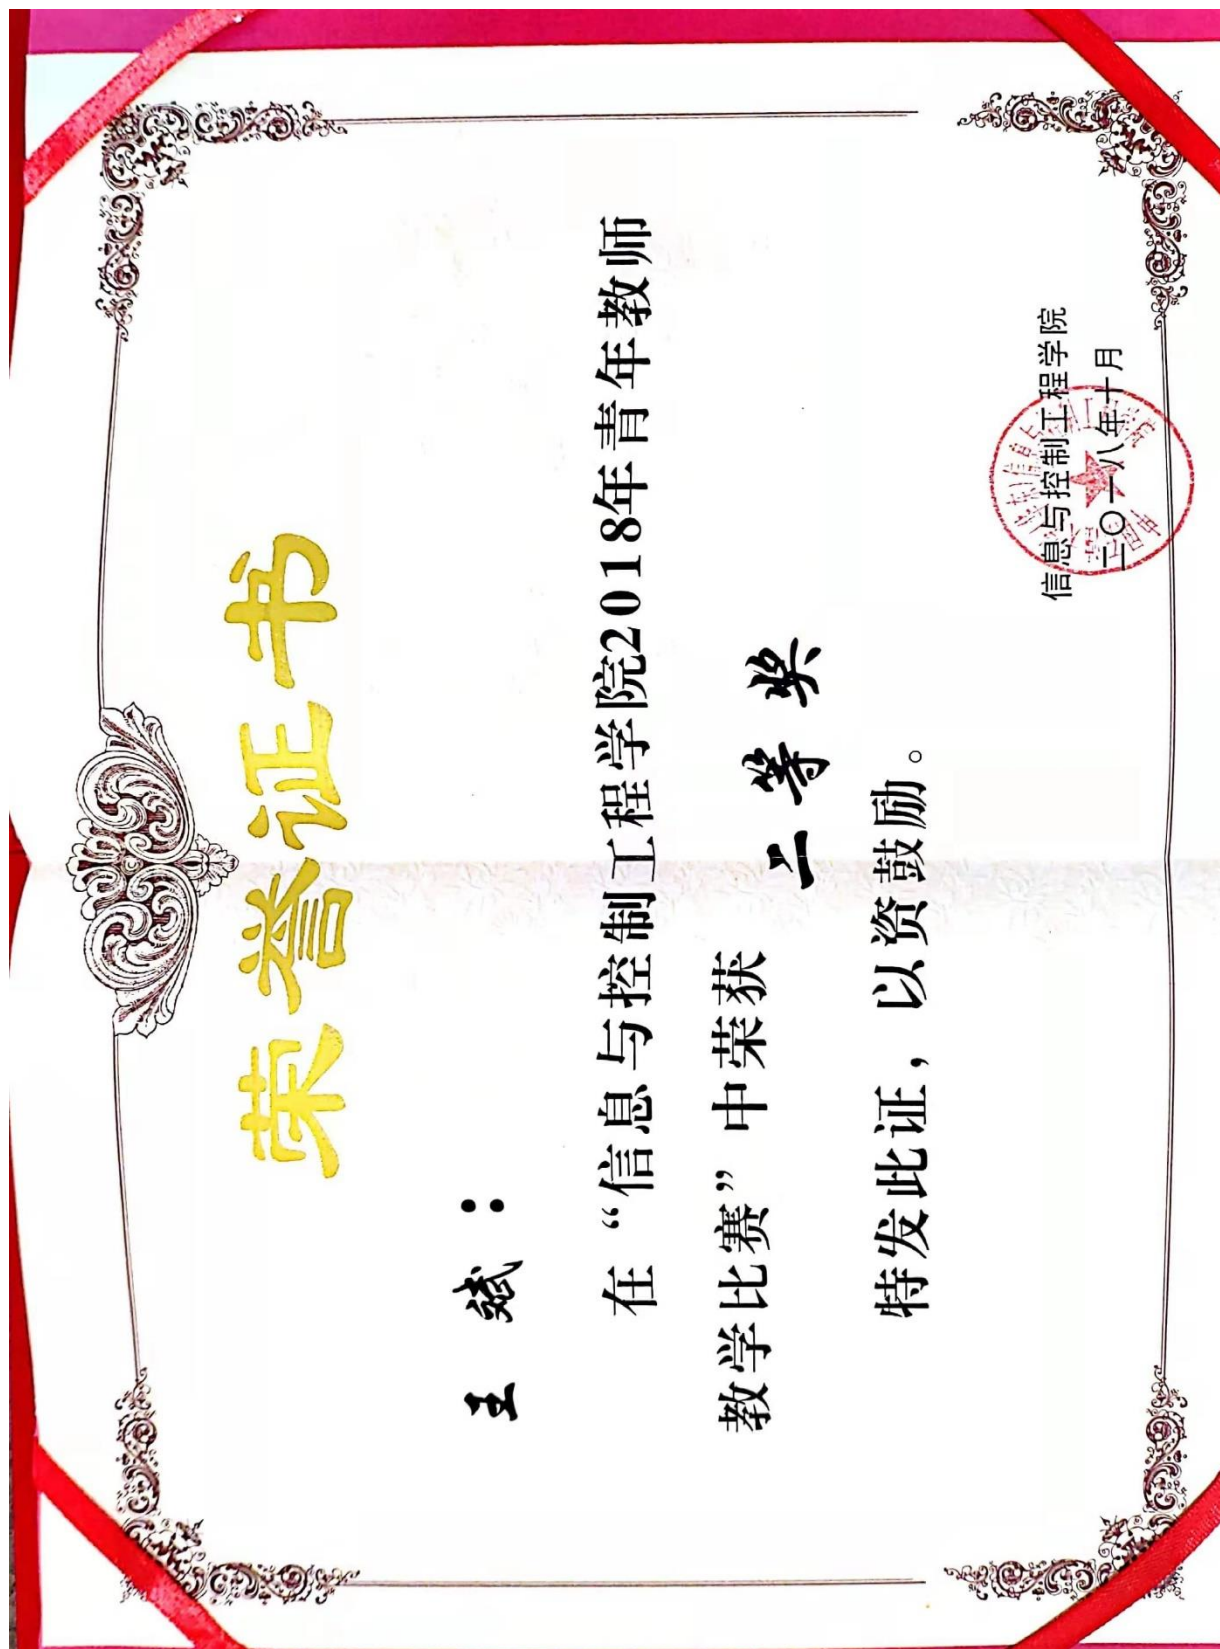 荣誉证书
王 斌：
在“信息与控制工程学院2018年青年教师
教学比赛”中荣获 二等奖
特发此证，以资鼓励。
信息与控制工程学院
二〇一八年十月